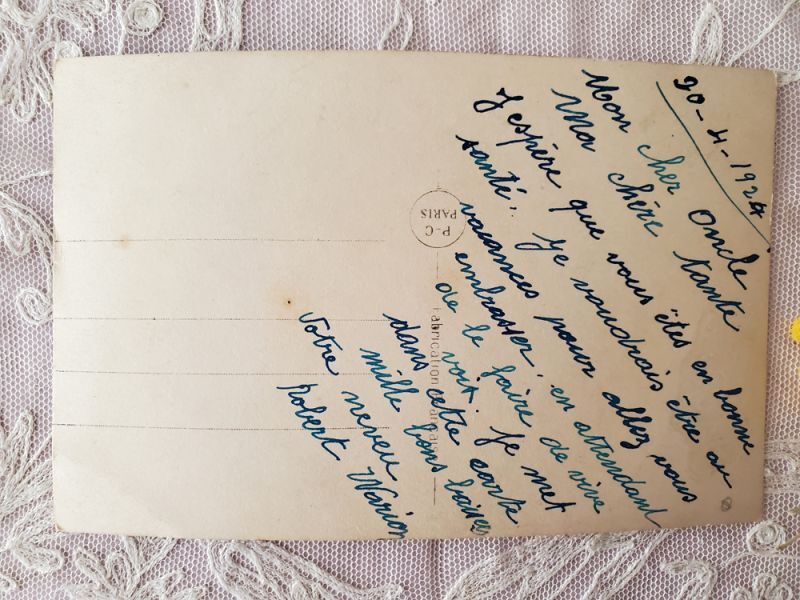 20-4-1924
Mon cher Oncle
Ma chère tante
J'espère que vous êtes en bonne
santé. Je voudrais être au
vacances pour allez vous
embrasser, en attendant
de le faire de vive
voit. Je met
dans cette carte
mille bons baisers
Votre neveu
Robert
P-C
PARIS
Fabrication